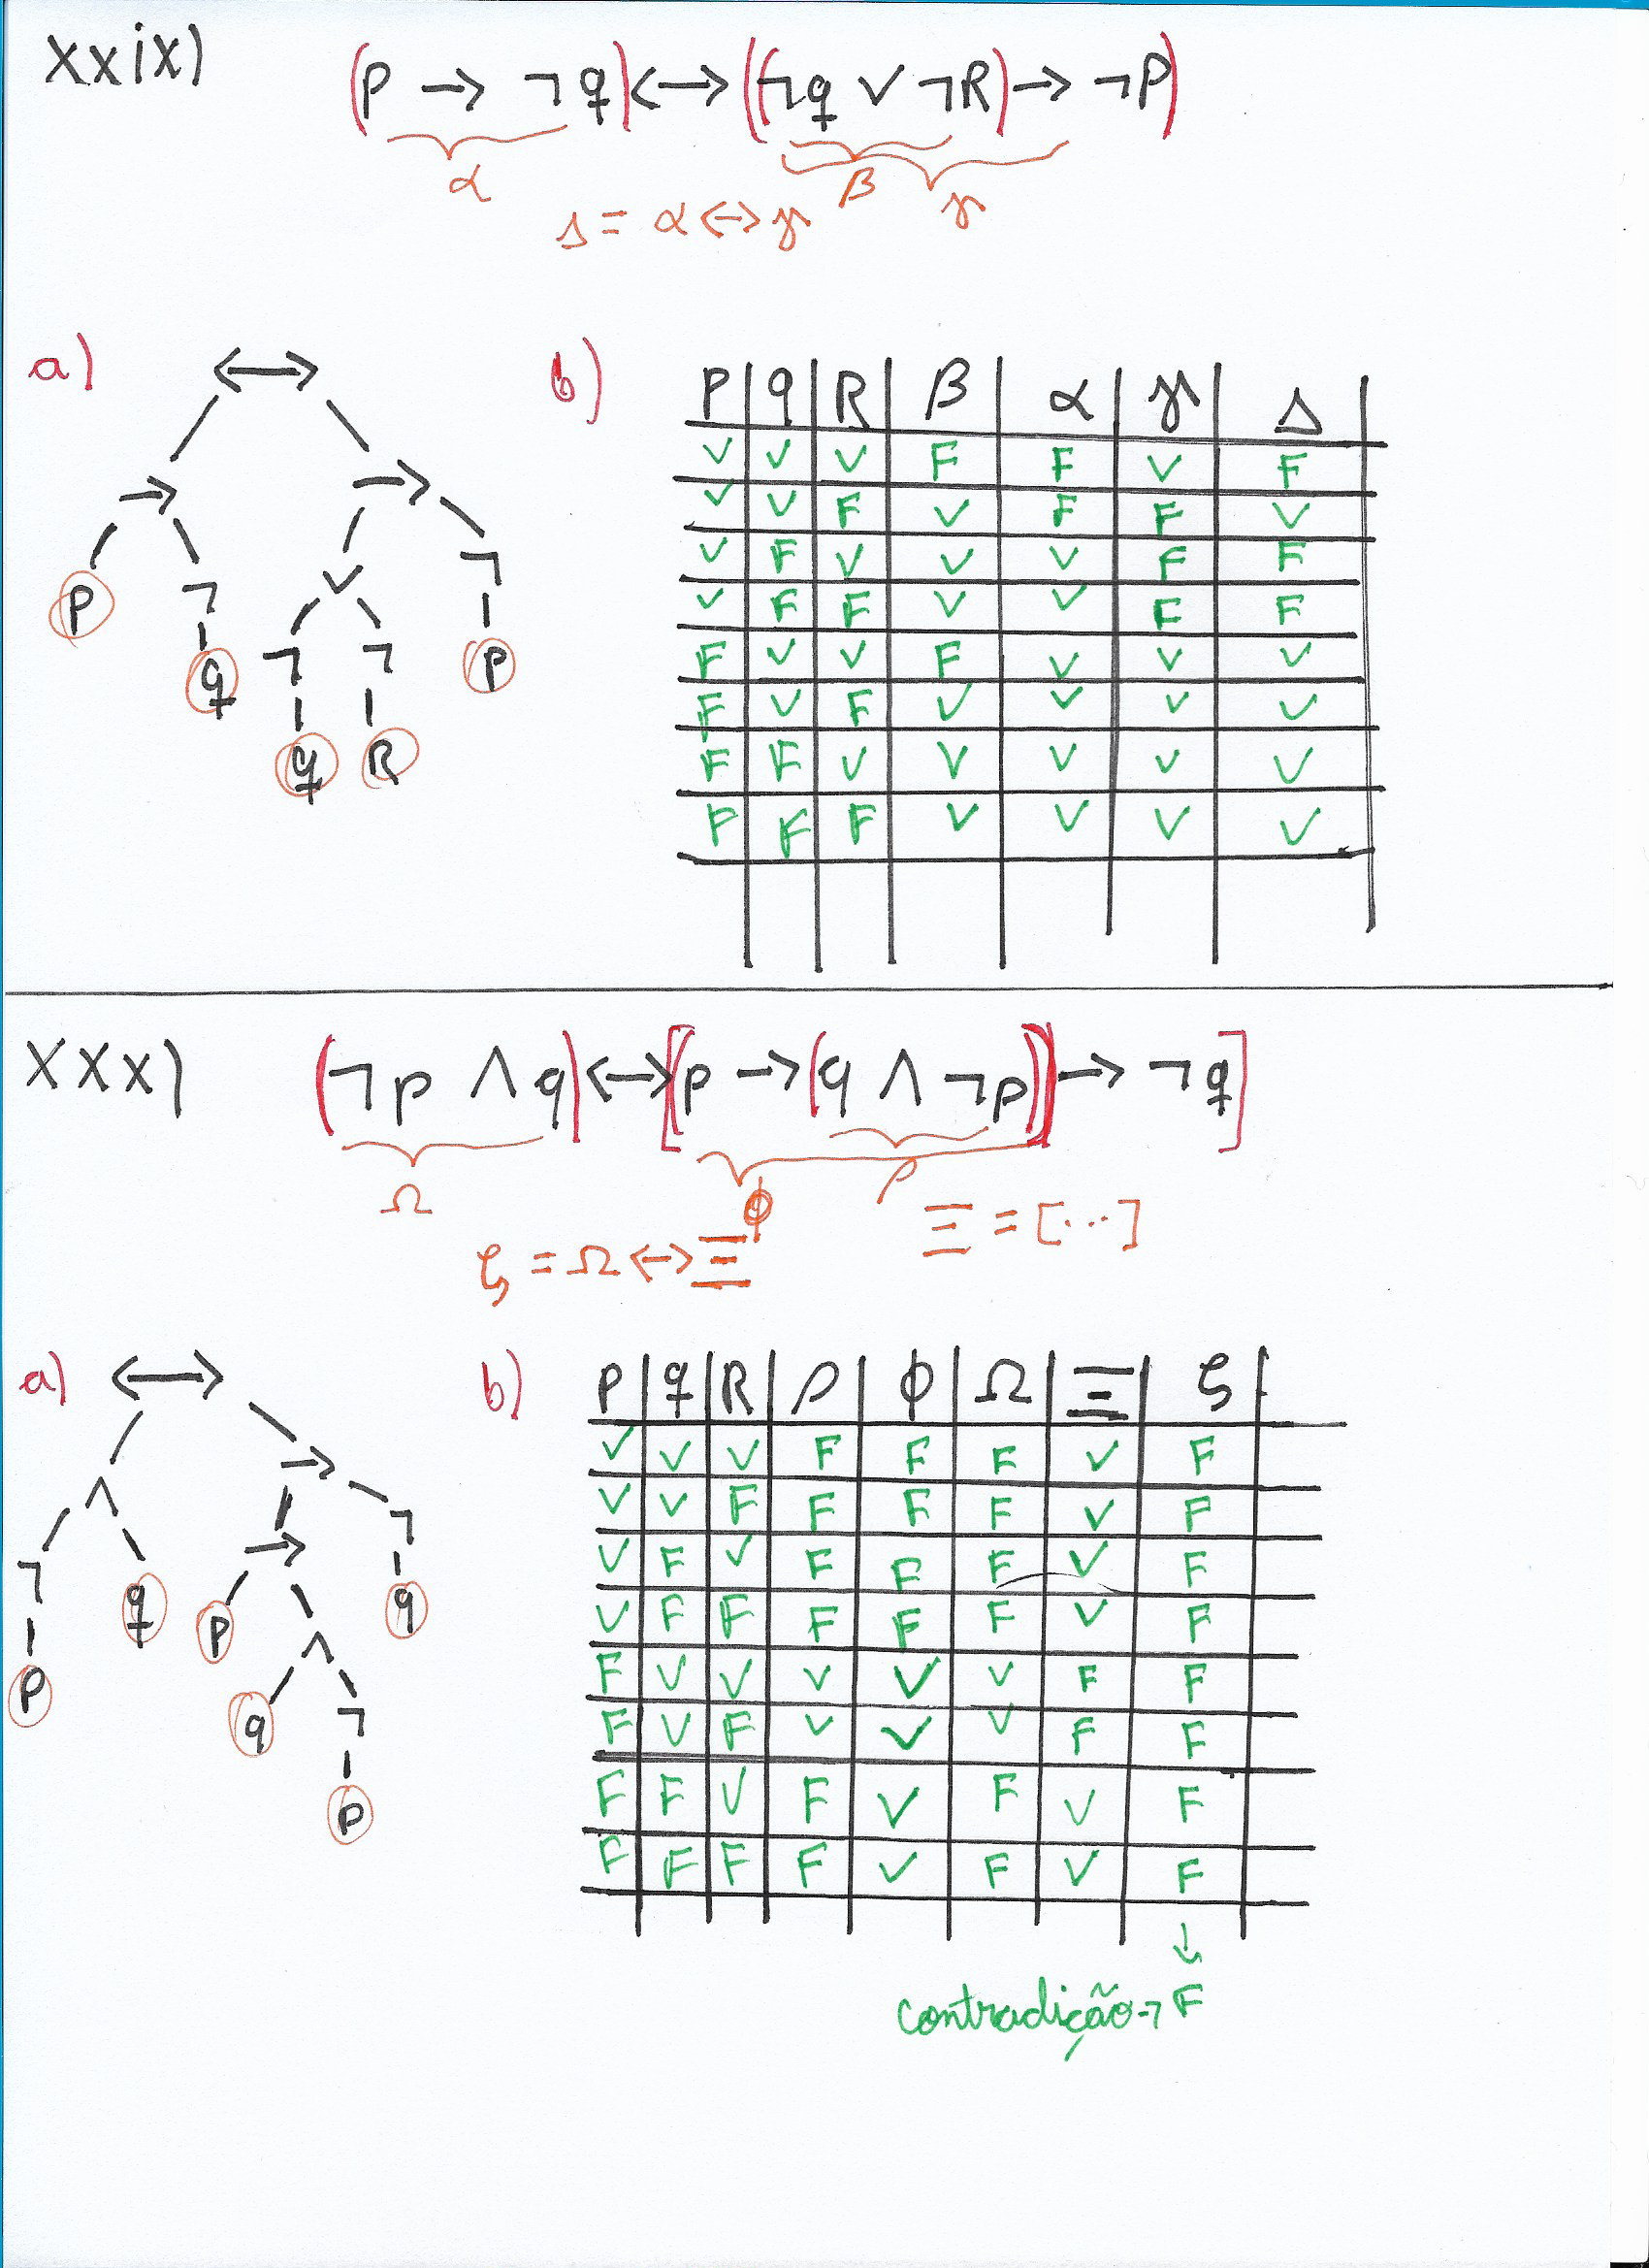 xxix) (P → ¬q) ↔ ((¬q ∨ ¬R) → ¬P)
α β γ
Δ = α ↔ γ
a) ↔
→ →
P ¬ ∨ ¬
q ¬ ¬ P
q R
b) P q R β α γ Δ
V V V F F V F
V V F V F F V
V F V V V F F
V F F V V F F
F V V F V V V
F V F V V V V
F F V V V V V
F F F V V V V
xxx) (¬p ∧ q) ↔ [(p → (q ∧ ¬p)) → ¬q]
Ω ϕ ρ
Ξ = [...]
ζ = Ω ↔ Ξ
a) ↔
∧ →
¬ q → ¬
P P ∧ q
q ¬
P
b) P q R ρ ϕ Ω Ξ ζ
V V V F F F V F
V V F F F F V F
V F V F F F V F
V F F F F F V F
F V V V V V F F
F V F V V V F F
F F V F V F V F
F F F F V F V F
↓
contradição → F